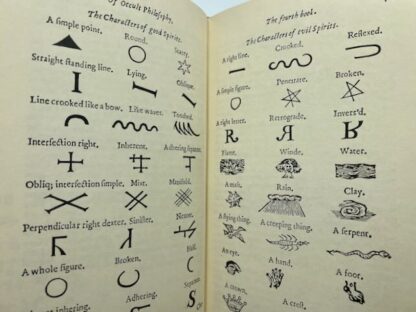 Of Occult Philosophy,
The Characters of good Spirits.
A simple point. Round. Starry.
Straight standing line. Lying. Oblique.
Line crooked like a bow. Like waves. Toothed.
Intersection right. Inherent. Adhering separate.
Obliq; intersection simple. Mixt. Manifold.
Perpendicular right dexter. Sinister. Neuter.
A whole figure. Broken. Half.
A letter inhering. Adhering. Separate.
The fourth book.
The Characters of evil Spirits.
A right line. Crooked. Reflexed.
A simple figure. Penetrate. Broken.
A right letter. Retrograde. Invers'd.
Flame. Winde. Water.
A mass. Rain. Clay.
A flying thing. A creeping thing. A serpent.
An eye. A hand. A foot.
A crown. A crest.